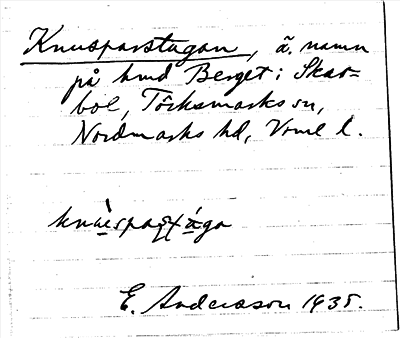 Knusparstugan, ä. namn
på hmd Berget i Skar=
bol, Töcksmarks sn,
Nordmarks hd, Vrml l.
E. Andersson 1935.